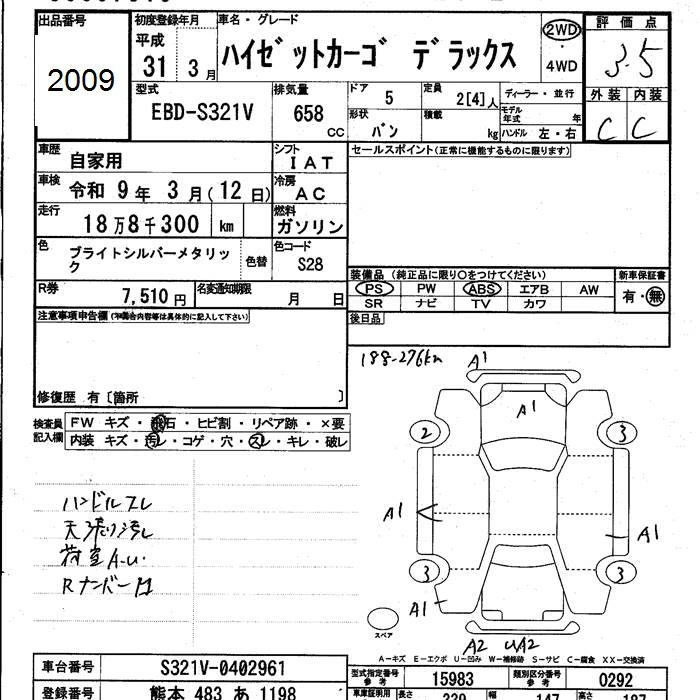 出品番号 初度登録年月 車名・グレード 評価点
2009 平成 31 3月 ハイゼットカーゴ デラックス 2WD ・ 4WD 3.5
型式 排気量 ドア 5 定員 2[4]人 ディーラー・並行 外装 内装
EBD-S321V 658 cc 形状 バン 積載 kg モデル年式 年 ハンドル 左・右 C C
車歴 自家用 シフト IAT セールスポイント(正常に機能するものに限ります)
車検 令和 9年 3月(12日) 冷房 AC
走行 18万8千300 km 燃料 ガソリン
色 ブライトシルバーメタリック 色替 色コード S28
装備品 (純正品に限り○をつけてください) 新車保証書
R券 7,510円 名変通知期限 月 日 PS PW ABS エアB AW 有・無
SR ナビ TV カワ
注意事項申告欄 (不具合内容等は具体的に記入して下さい) 後日品
188-276km A1
修復歴 有〔箇所 〕 A1
検査員記入欄 FW キズ・飛石・ヒビ割・リペア跡・×要
内装 キズ・汚レ・コゲ・穴・スレ・キレ・破レ
2 3
ハンドルスレ
天張り汚レ
荷室A-U.
Rナンバー凹
A1 A1
3 3
A1
スペア
A2 UA2
A-キズ E-エクボ U-凹み W-補修跡 S-サビ C-腐食 XX-交換済
車台番号 S321V-0402961 型式指定番号参考 15983 類別区分番号参考 0292
登録番号 熊本 483 あ 1198 車車証明用 長さ 339 幅 147 高さ 187